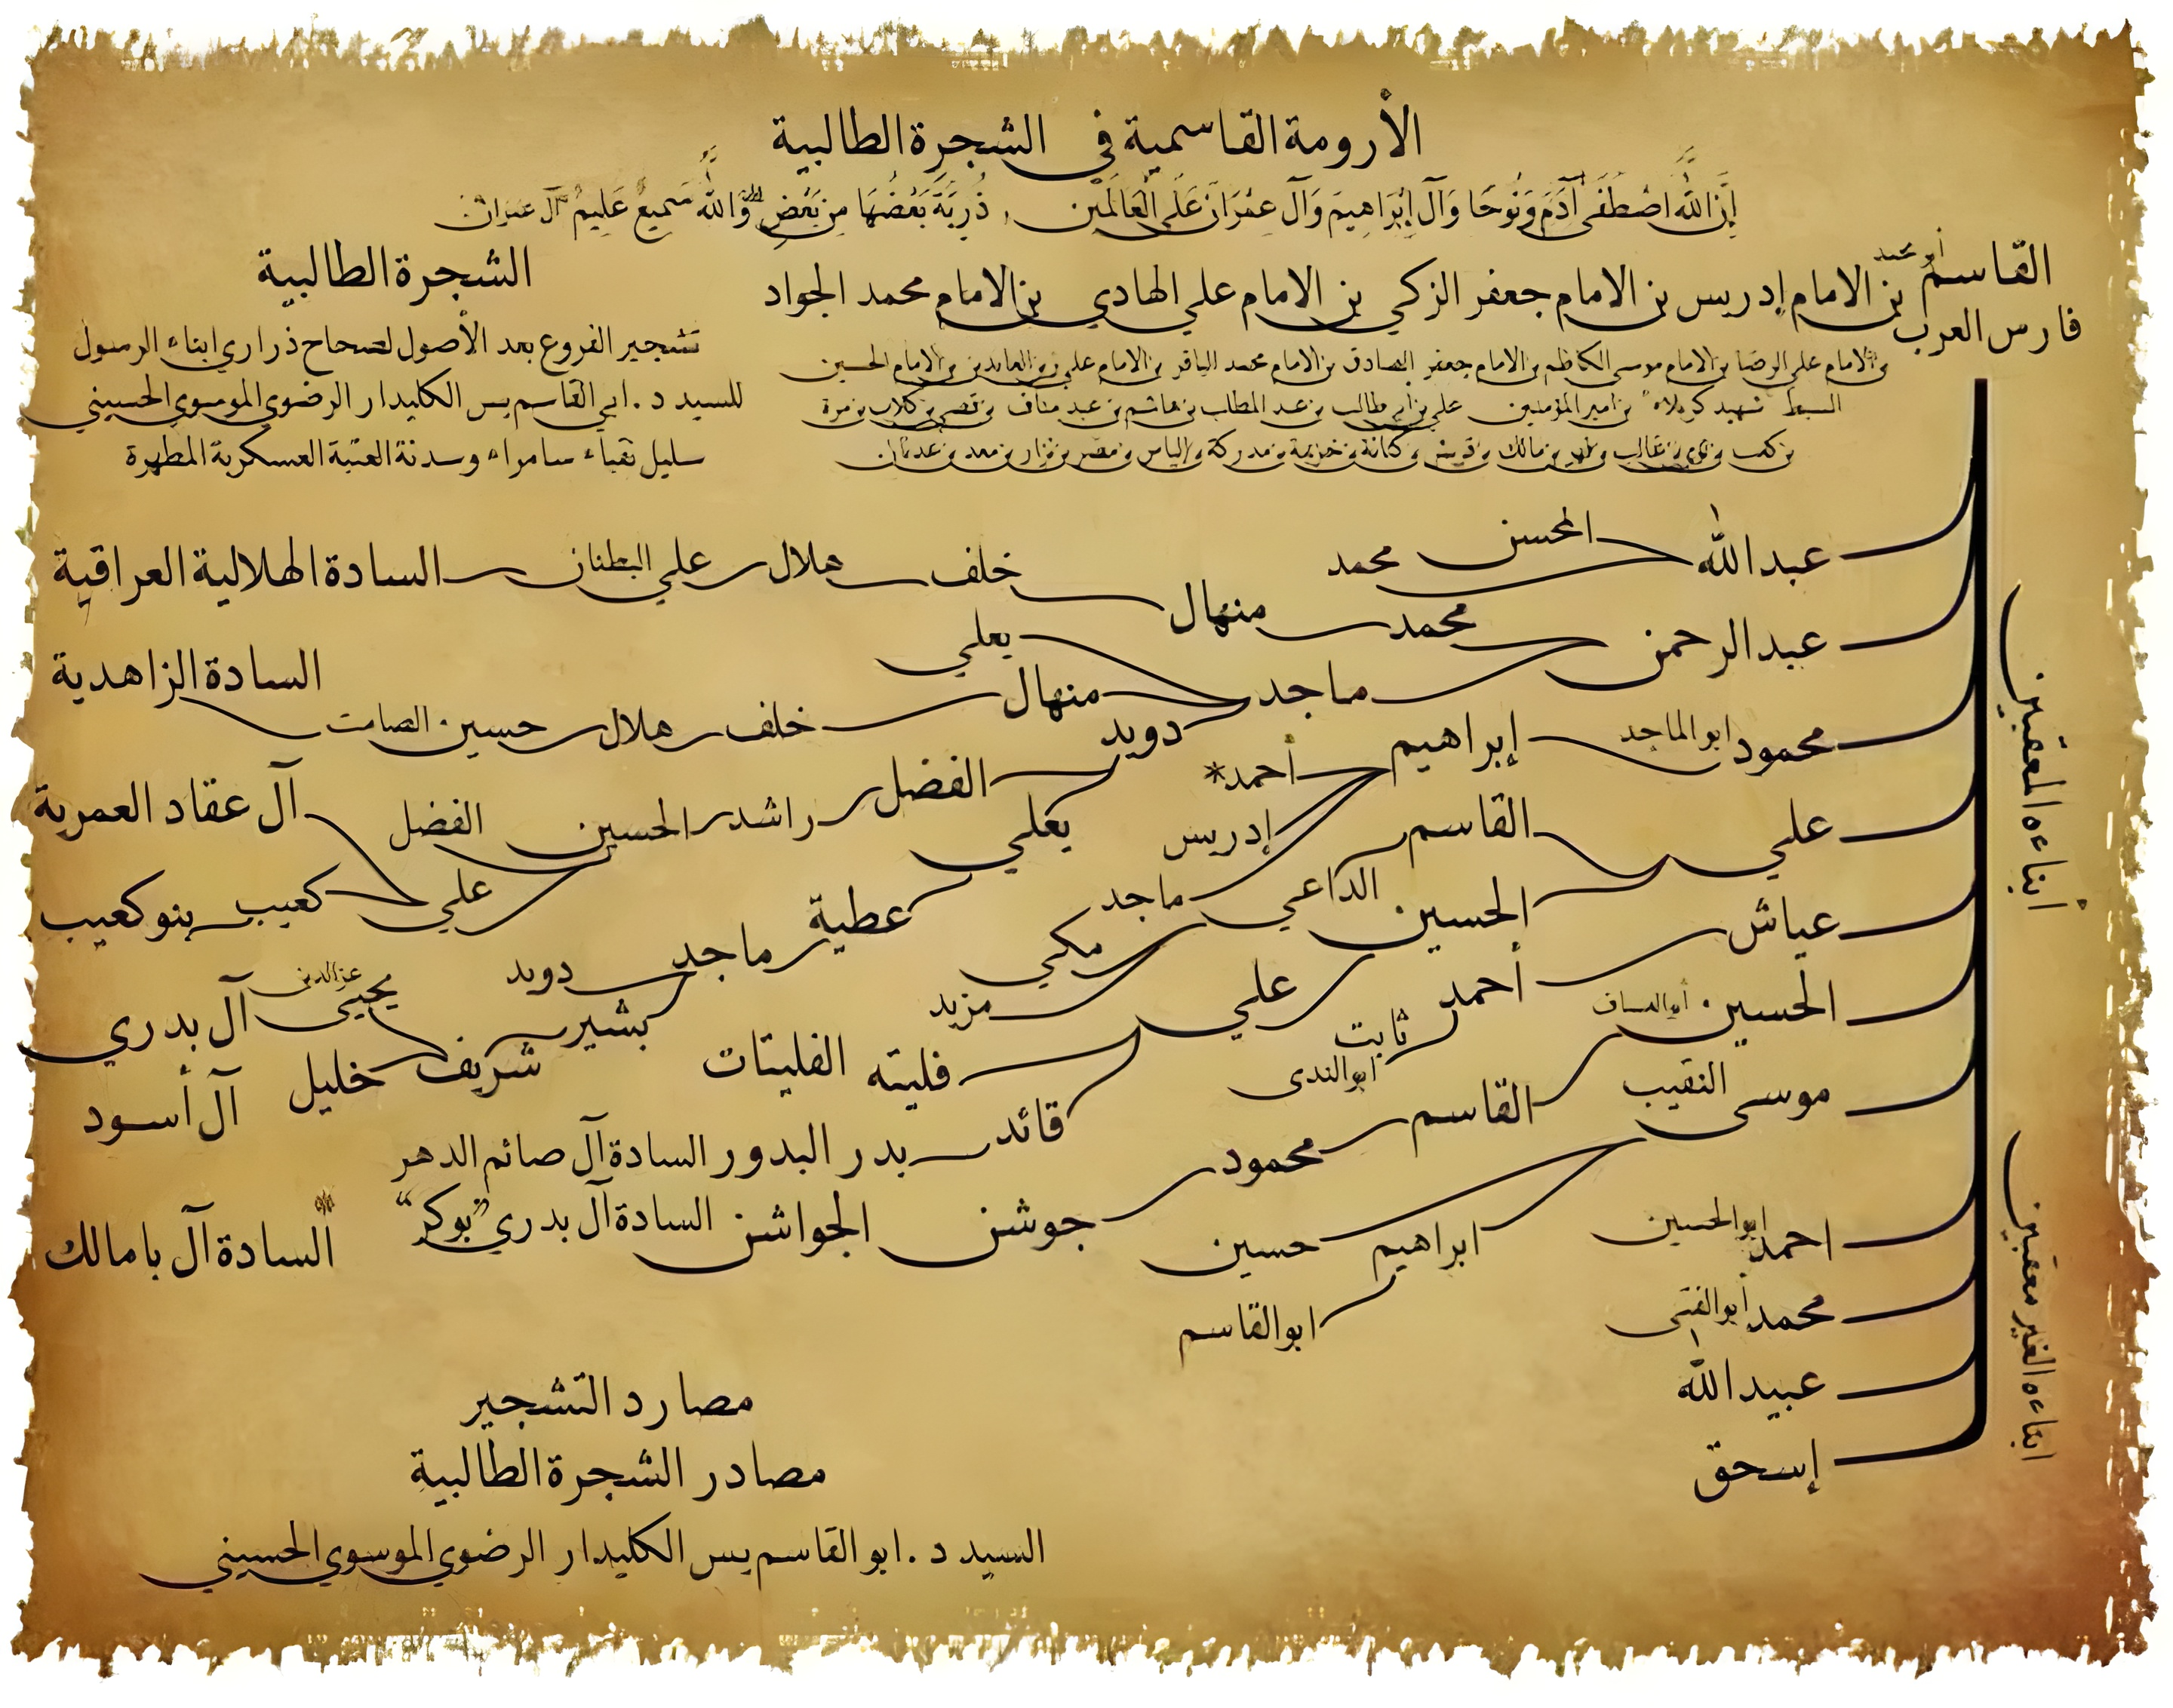 الأرومة القاسمية في الشجرة الطالبية
إِنَّ اللَّهَ اصْطَفَى آدَمَ وَنُوحًا وَآلَ إِبْرَاهِيمَ وَآلَ عِمْرَانَ عَلَى الْعَالَمِينَ ، ذُرِّيَّةً بَعْضُهَا مِن بَعْضٍ وَاللَّهُ سَمِيعٌ عَلِيمٌ آل عمران
القاسم أبو محمد بن الامام إدريس بن الامام جعفر الزكي بن الامام علي الهادي بن الامام محمد الجواد
فارس العرب
بن الامام علي الرضا بن الامام موسى الكاظم بن الامام جعفر الصادق بن الامام محمد الباقر بن الامام علي زين العابدين بن الامام الحسين
السبط شهيد كربلاء بن امير المؤمنين علي بن ابي طالب بن عبد المطلب بن هاشم بن عبد مناف بن قصي بن كلاب بن مرة
بن كعب بن لؤي بن غالب بن فهر بن مالك بن قريش بن كنانة بن خزيمة بن مدركة بن الياس بن مضر بن نزار بن معد بن عدنان
الشجرة الطالبية
تشجير الفروع بعد الأصول لصحاح ذراري ابناء الرسول
للسيد د . ابي القاسم يس الكليدار الرضوي الموسوي الحسيني
سليل نقباء سامراء وسدنة العتبة العسكرية المطهرة
أبناءه المعقبين
عبدالله المحسن محمد
عبدالرحمن محمد منهال خلف هلال علي البطنان السادة الهلالية العراقية
ماجد يعلي
منهال خلف هلال حسين الصامت السادة الزاهدية
دويد الفضل راشد الحسين الفضل
علي آل عقاد العمرية
كعيب بنو كعيب
يعلي عطية ماجد دويد
بشير شريف يحيى عزالدين آل بدري
خليل آل أسود
محمود ابو الماجد إبراهيم أحمد*
إدريس
ماجد
مكي
مزيد
علي القاسم الداعي
الحسين علي فليته الفليتات
قائد بدر البدور السادة آل صائم الدهر
عياش أحمد ثابت ابو الندى
الحسين القاسم محمود جوشن الجواشن السادة آل بدري "بوكر" السادة آل بامالك
موسى النقيب حسين
ابراهيم ابو القاسم
ابناءه الغير معقبين
احمد ابو الحسين
محمد أبو الفتى
عبيدالله
إسحق
مصارد التشجير
مصادر الشجرة الطالبية
السيد د . ابو القاسم يس الكليدار الرضوي الموسوي الحسيني